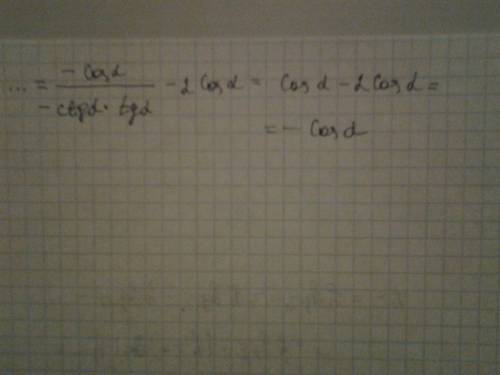 ... = -cosα / -ctgα · tgα - 2cosα = cosα - 2cosα =
= - cosα